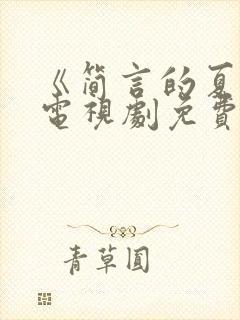 《简言的夏
電視劇免費
青草圓